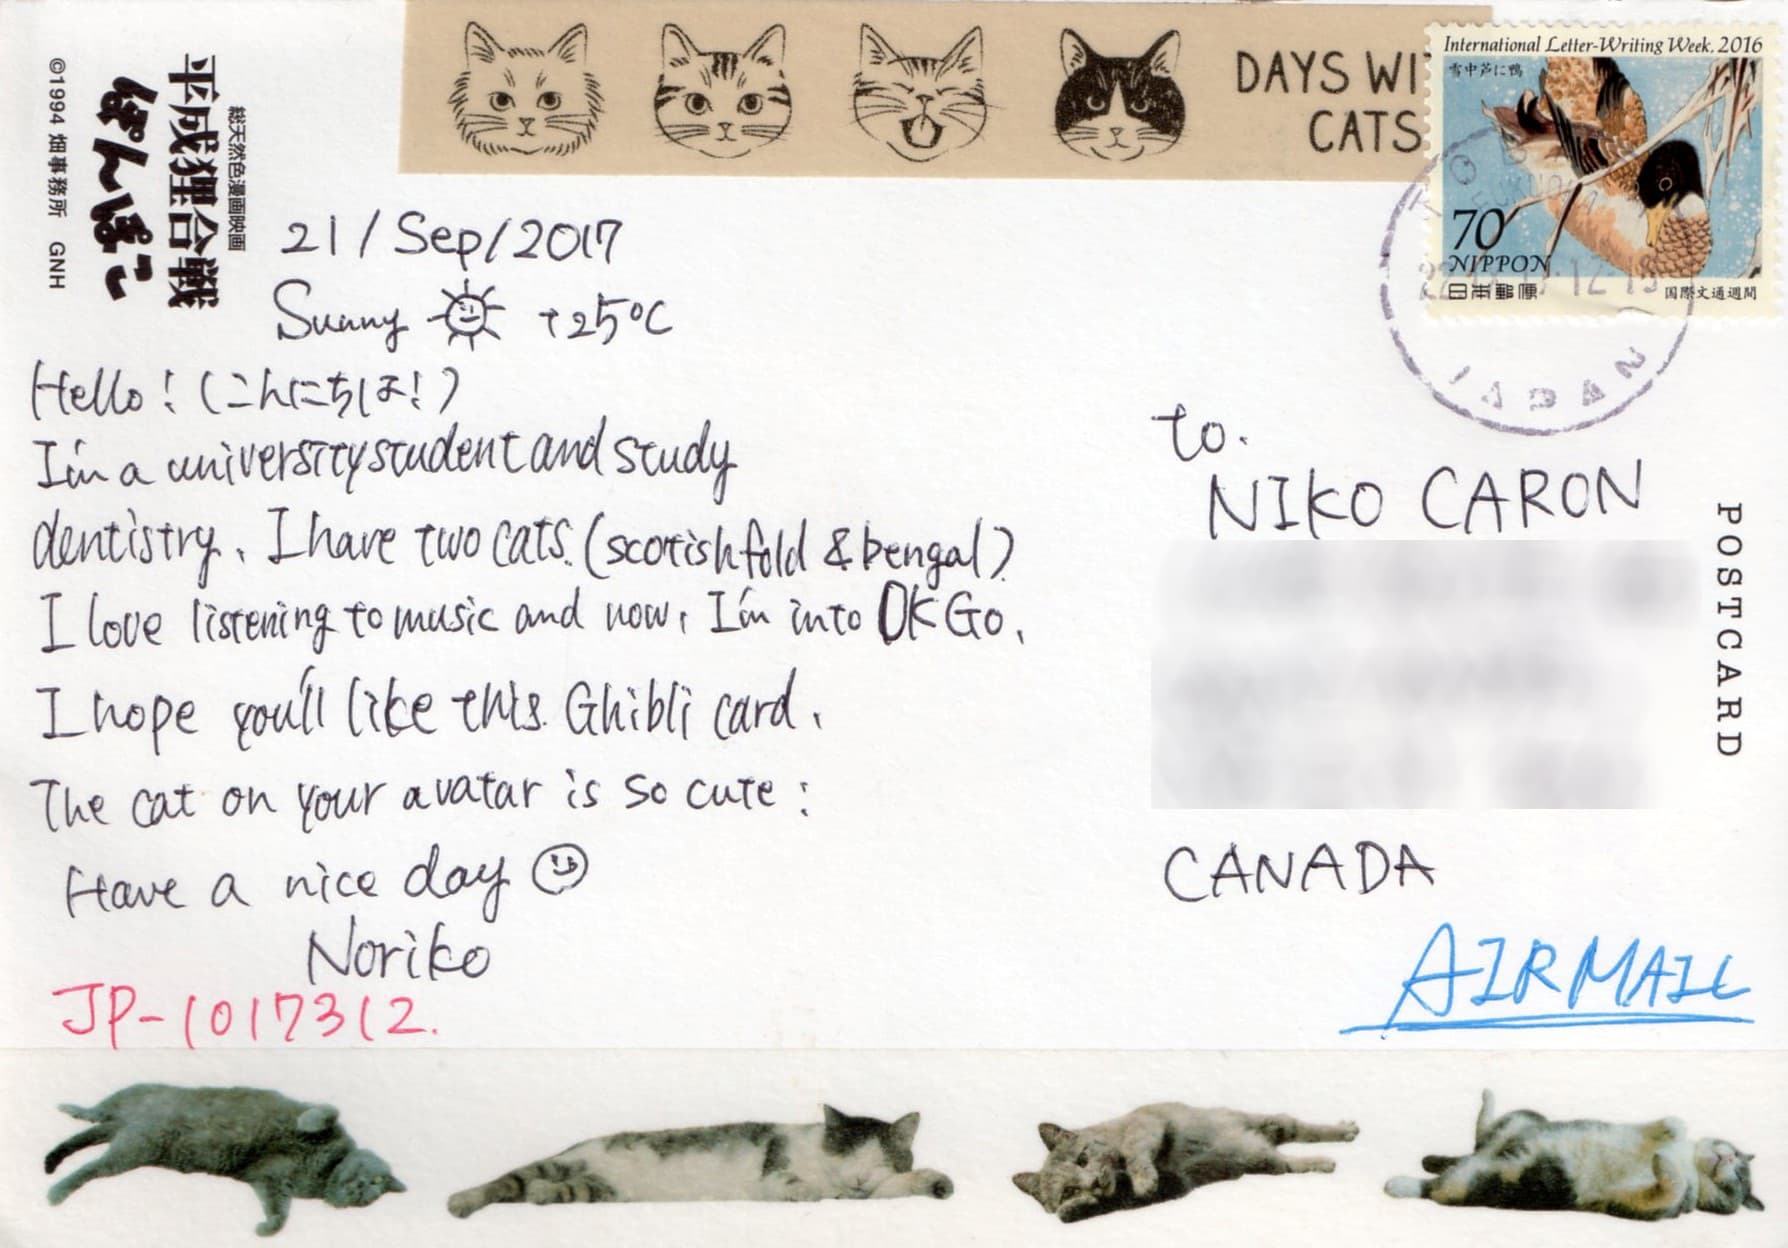 総天然色漫画映画
平成狸合戦
ぽんぽこ
©1994 畑事務所 GNH
DAYS WI
CATS
International Letter-Writing Week, 2016
雪中芦に鴨
70
NIPPON
日本郵便
国際文通週間
JAPAN
21/Sep/2017
Sunny +25°C
Hello! (こんにちは!)
I'm a university student and study
dentistry. I have two cats. (scotish fold & bengal)
I love listening to music and now, I'm into OK Go.
I hope you'll like this Ghibli card.
The cat on your avatar is so cute :
Have a nice day
Noriko
JP-1017312.
to.
NIKO CARON
CANADA
AIRMAIL
POSTCARD